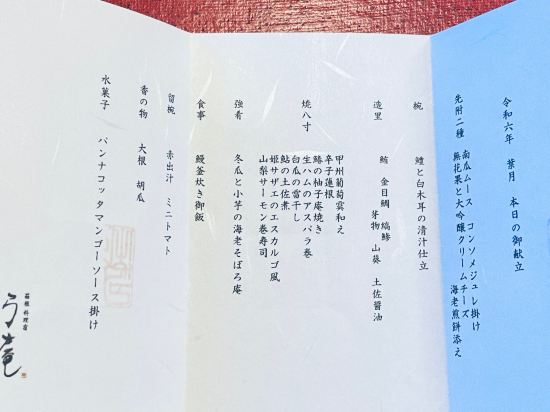 令和六年 葉月 本日の御献立
先附二種 南瓜ムース コンソメジュレ掛け
無花果と大吟醸クリームチーズ
海老煎餅添え
椀 鱧と白木耳の清汁仕立
造里 鮪 金目鯛 縞鯵
芽物 山葵 土佐醤油
焼八寸 甲州葡萄雲和え
辛子蓮根
鰆の柚子庵焼き
生ハムのアスパラ巻
白瓜の雷干し
鮎の土佐煮
姫サザエのエスカルゴ風
山梨サーモン巻寿司
強肴 冬瓜と小芋の海老そぼろ庵
食事 鰻釜炊き御飯
留椀 赤出汁 ミニトマト
香の物 大根 胡瓜
水菓子 パンナコッタマンゴーソース掛け
箱根 料理宿